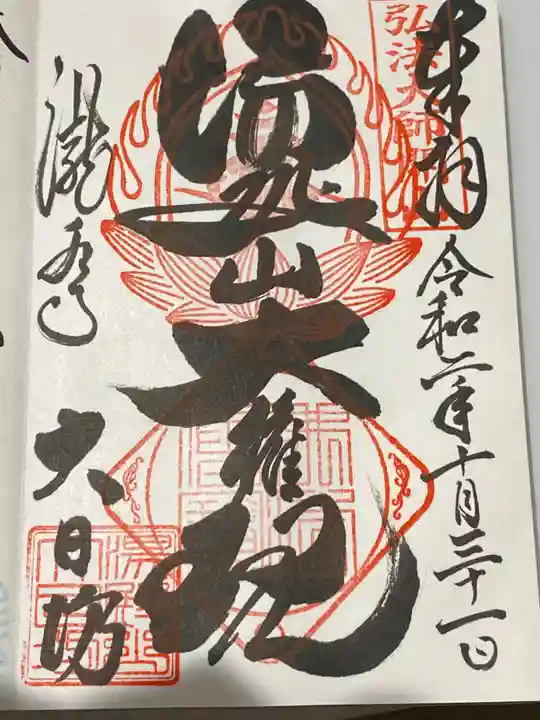 奉拝
令和二年十月三十一日
弘法大師
湯殿山大権現
瀧水寺
大日坊